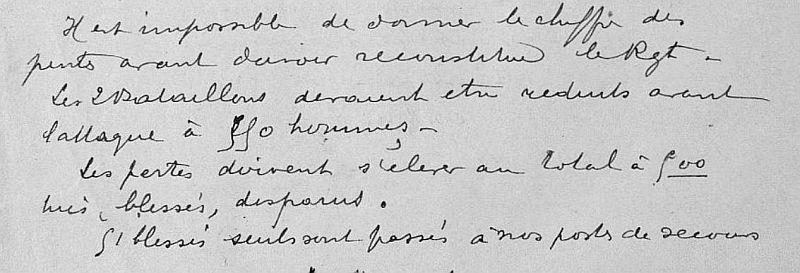 Il est impossible de donner le chiffre des
pertes avant d'avoir reconstitué le Rgt -
Les 2 Bataillons devaient etre reduits avant
l'attaque à 550 hommes -
Les pertes doivent s'élever au total à 500
tués, blessés, disparus.
51 blessés seuls sont passés à nos postes de secours